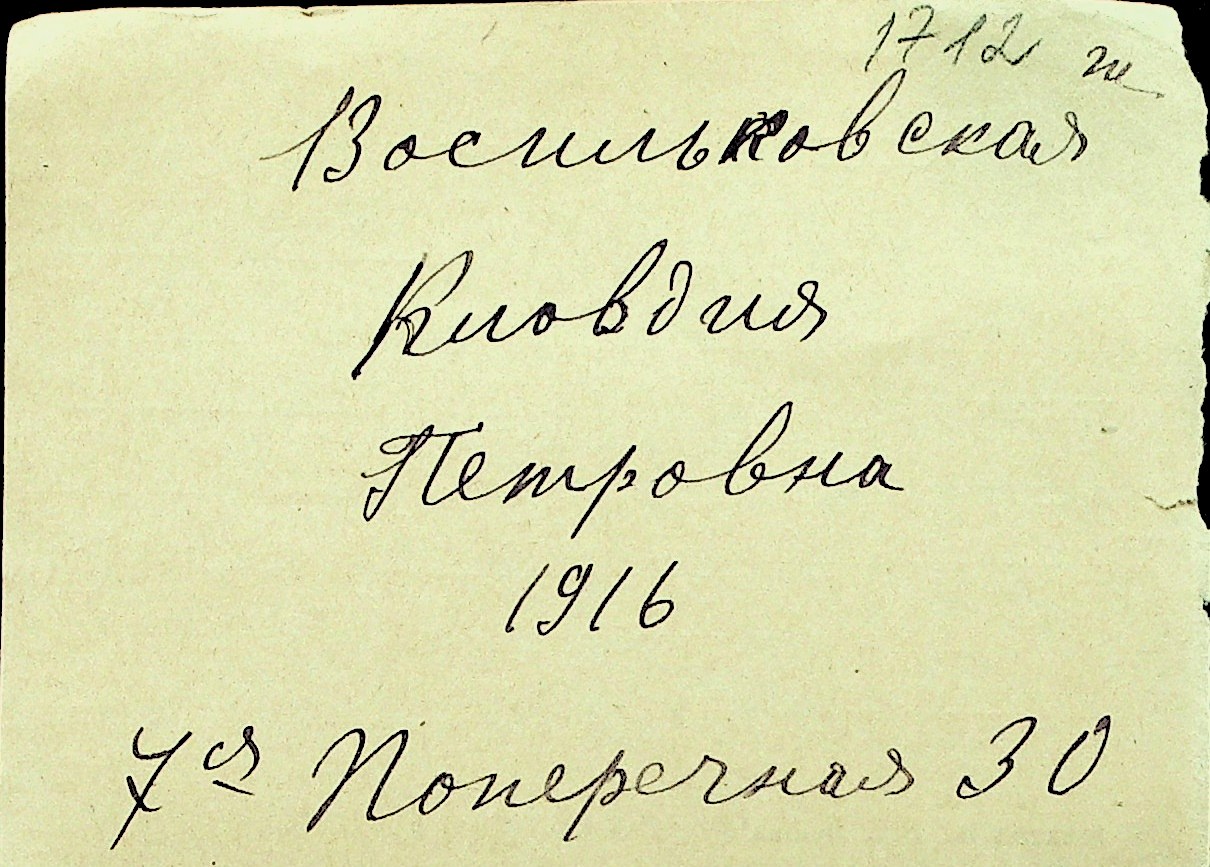 1712 ж
Восильковская
Кловдия
Петровна
1916
7я Поперечная 30